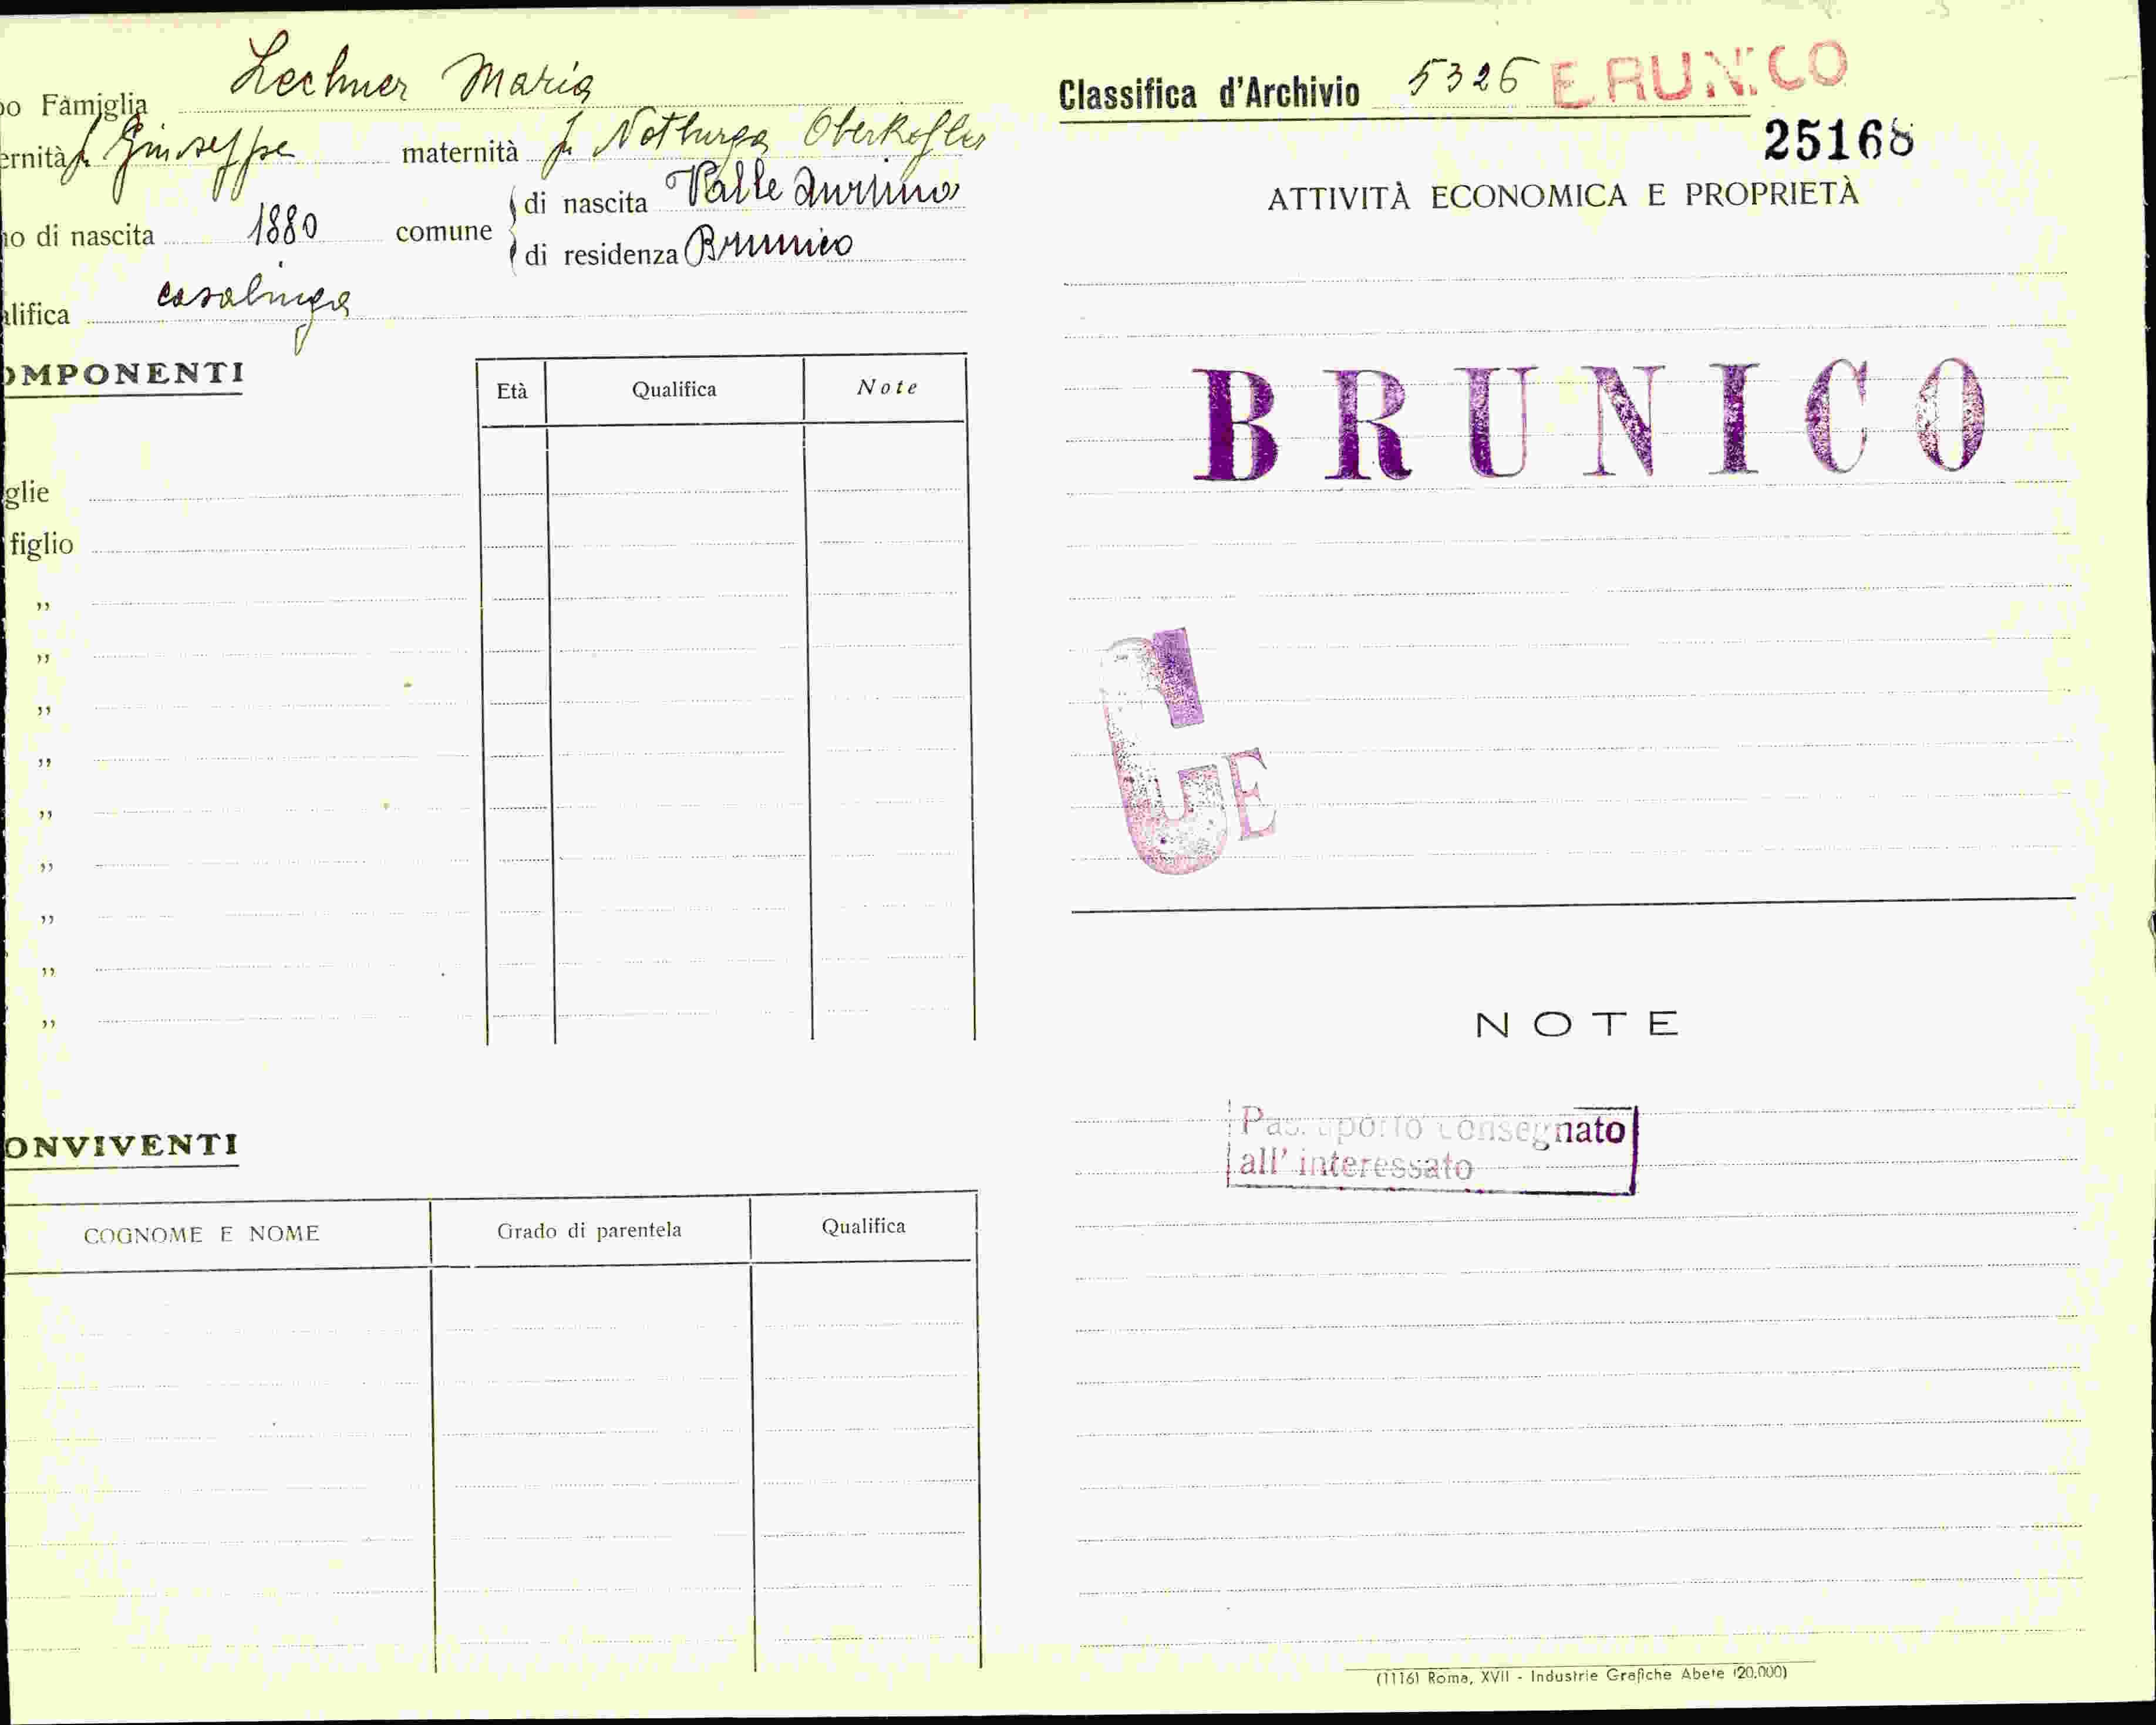 po Famiglia Lechner Maria
ernità f. Giuseppe maternità f. Notburga Oberkofler
no di nascita 1880 comune di nascita Valle Aurina
di residenza Brunico
alifica casalinga
OMPONENTI
Età Qualifica Note
glie
figlio
„
„
„
„
„
„
„
„
„
ONVIVENTI
COGNOME E NOME Grado di parentela Qualifica
Classifica d'Archivio 5326 BRUNICO
25168
ATTIVITÀ ECONOMICA E PROPRIETÀ
BRUNICO
E
NOTE
Passaporto consegnato
all' interessato
(1116) Roma, XVII - Industrie Grafiche Abete (20.000)